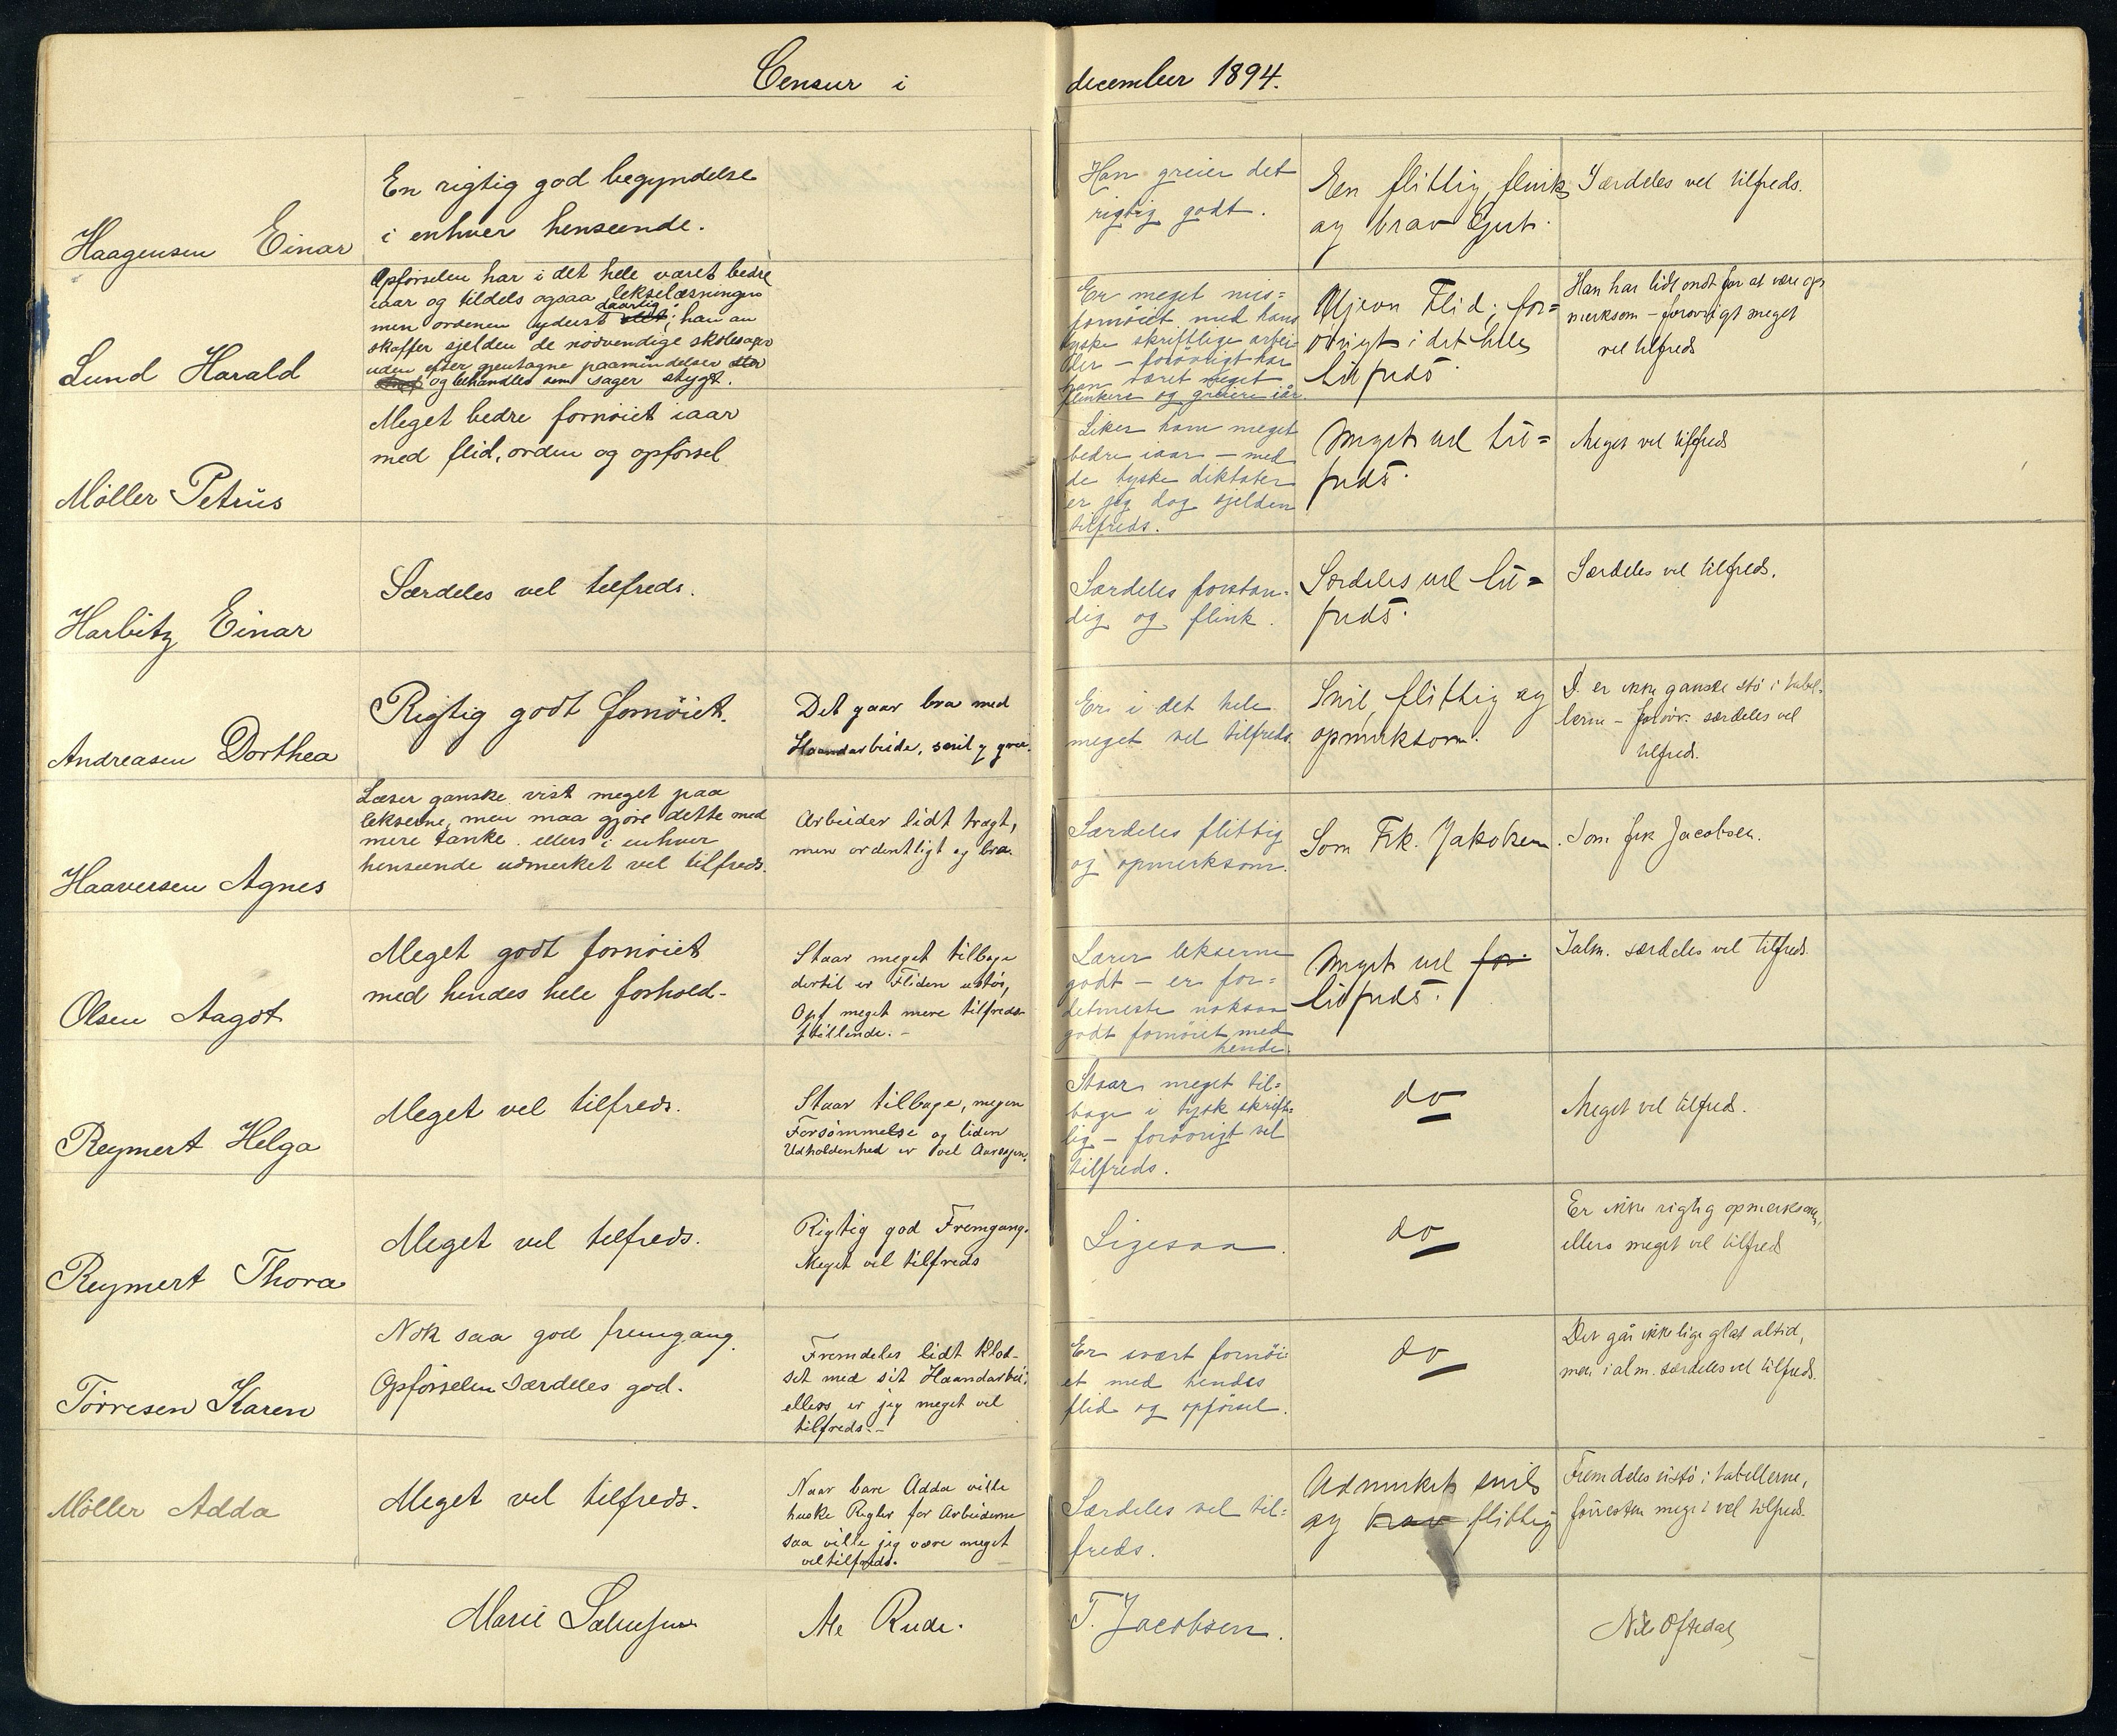 Censur i december 1894.
Haagensen Einar
En rigtig god begyndelse
i enhver henseende.
Han greier det
rigtig godt.
En flittig, flink
og brav Gut.
Særdeles vel tilfreds.
Lund Harald
Opförselen har i det hele været bedre
iaar og tildels ogsaa lekselæsningen
men ordenen yderst daarlig; han an
skaffer sjelden de nödvendige skolesager
uden efter gjentagne paamindelser
og behandler sem sager stygt.
Er meget mis=
fornöiet med hans
tyske skriftlige arbei
der – forövrigt har
han været meget
flinkere og greiere iår.
Ujevn Flid; for=
övrigt i det hele
tilfreds.
Han har lidt ondt for at være op
merksom – forövrigt meget
vel tilfreds
Möller Petrus
Meget bedre fornöiet iaar
med flid, orden og opförsel
Liker ham meget
bedre iaar – med
de tyske diktater
er jeg dog sjelden
tilfreds.
Meget vel til=
freds.
Meget vel tilfreds
Harbitz Einar
Særdeles vel tilfreds.
Særdeles forstan-
dig og flink.
Særdeles vel til=
freds.
Særdeles vel tilfreds.
Andreasen Dorthea
Rigtig godt fornöiet.
Det gaar bra med
Haandarbeide, snil og
Er i det hele
meget vel tilfreds.
Snil, flittig og
opmerksom.
D. er ikke ganske stö i tabel-
lerne – forövr. særdeles vel
tilfreds.
Haaversen Agnes
Læser ganske vist meget paa
lekserne, men maa gjöre dette med
mere tanke. ellers i enhver
henseende udmerket vel tilfreds.
Arbeider lidt tragt,
men ordentligt og bra.
Særdeles flittig
og opmerksom.
Som Frk. Jakobsen.
Som frk Jacobsen.
Olsen Aagot
Meget godt fornöiet
med hendes hele forhold.
Staar meget tilbage
dertil er Fliden ustö,
Opf meget mere tilfreds
stillende. –
Lærer lekserne
godt – er for=
detmeste noksaa
godt fornöiet med
hende.
Meget vel for
tilfreds.
Ialm. særdeles vel tilfreds.
Reymert Helga
Meget vel tilfreds.
Staar tilbage, megen
Forsömmelse og liden
Udholdenhed er vel Aarsagen.
Staar meget til=
bage i tysk skrift=
lig – forövrigt vel
tilfreds.
do
Meget vel tilfreds.
Reymert Thora
Meget vel tilfreds.
Rigtig god Fremgang.
Meget vel tilfreds
Ligesaa.
do
Er ikke rigtig opmerksom,
ellers meget vel tilfreds
Törresen Karen
Nok saa god fremgang.
Opförselen særdeles god.
Fremdeles lidt klod-
set med sit Haandarbei,
ellers er jeg meget vel
tilfreds. –
Er svært fornöi
et med hendes
flid og opförsel.
do
Det går ikke lige glat altid,
men i alm. særdeles vel tilfreds.
Möller Adda
Meget vel tilfreds.
Naar bare Adda vilde
huske Regler for Arbeiderne
saa vilde jeg være meget
vel tilfreds.
Særdeles vel til=
freds.
Udmerket snil
og brav flittig
Fremdeles ustö i tabellerne,
forresten meget vel tilfreds.
Marie
Me Rude.
T. Jacobsen.
Nils Oftedal